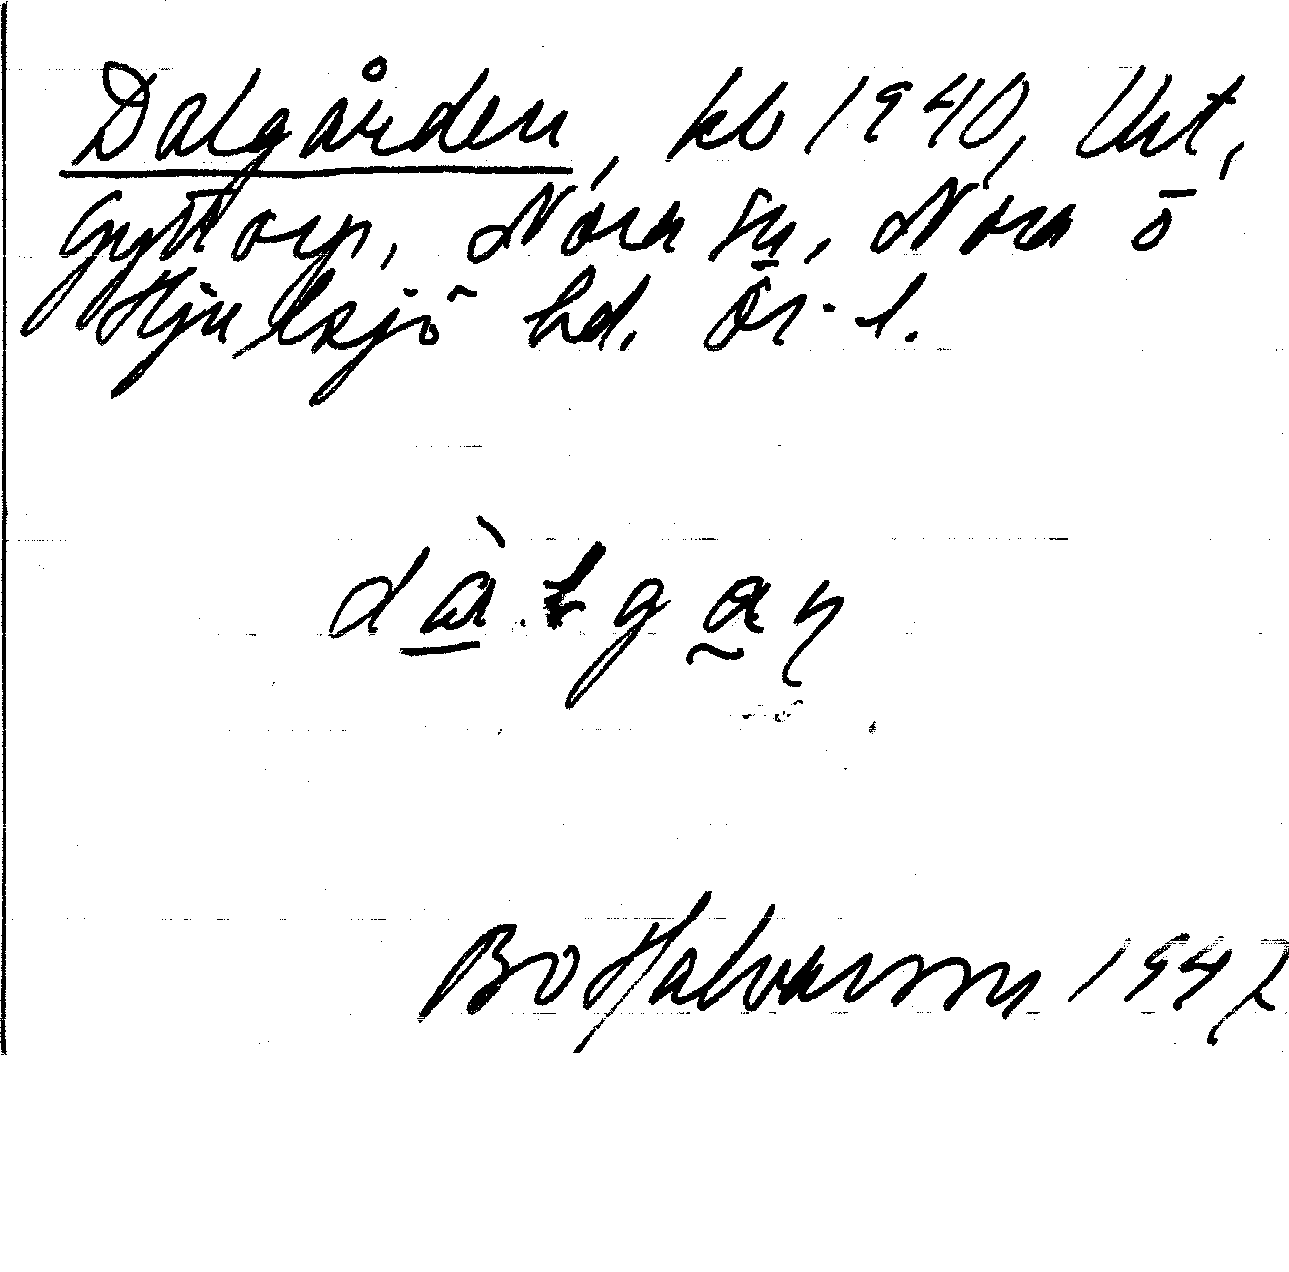 Dalgården, kb 1940, Urt,
Gyttorp, Nora sn, Nora o
Hjulsjö hd. Ör. l.
dàlgaṇ
Bo Halvarsson 1947